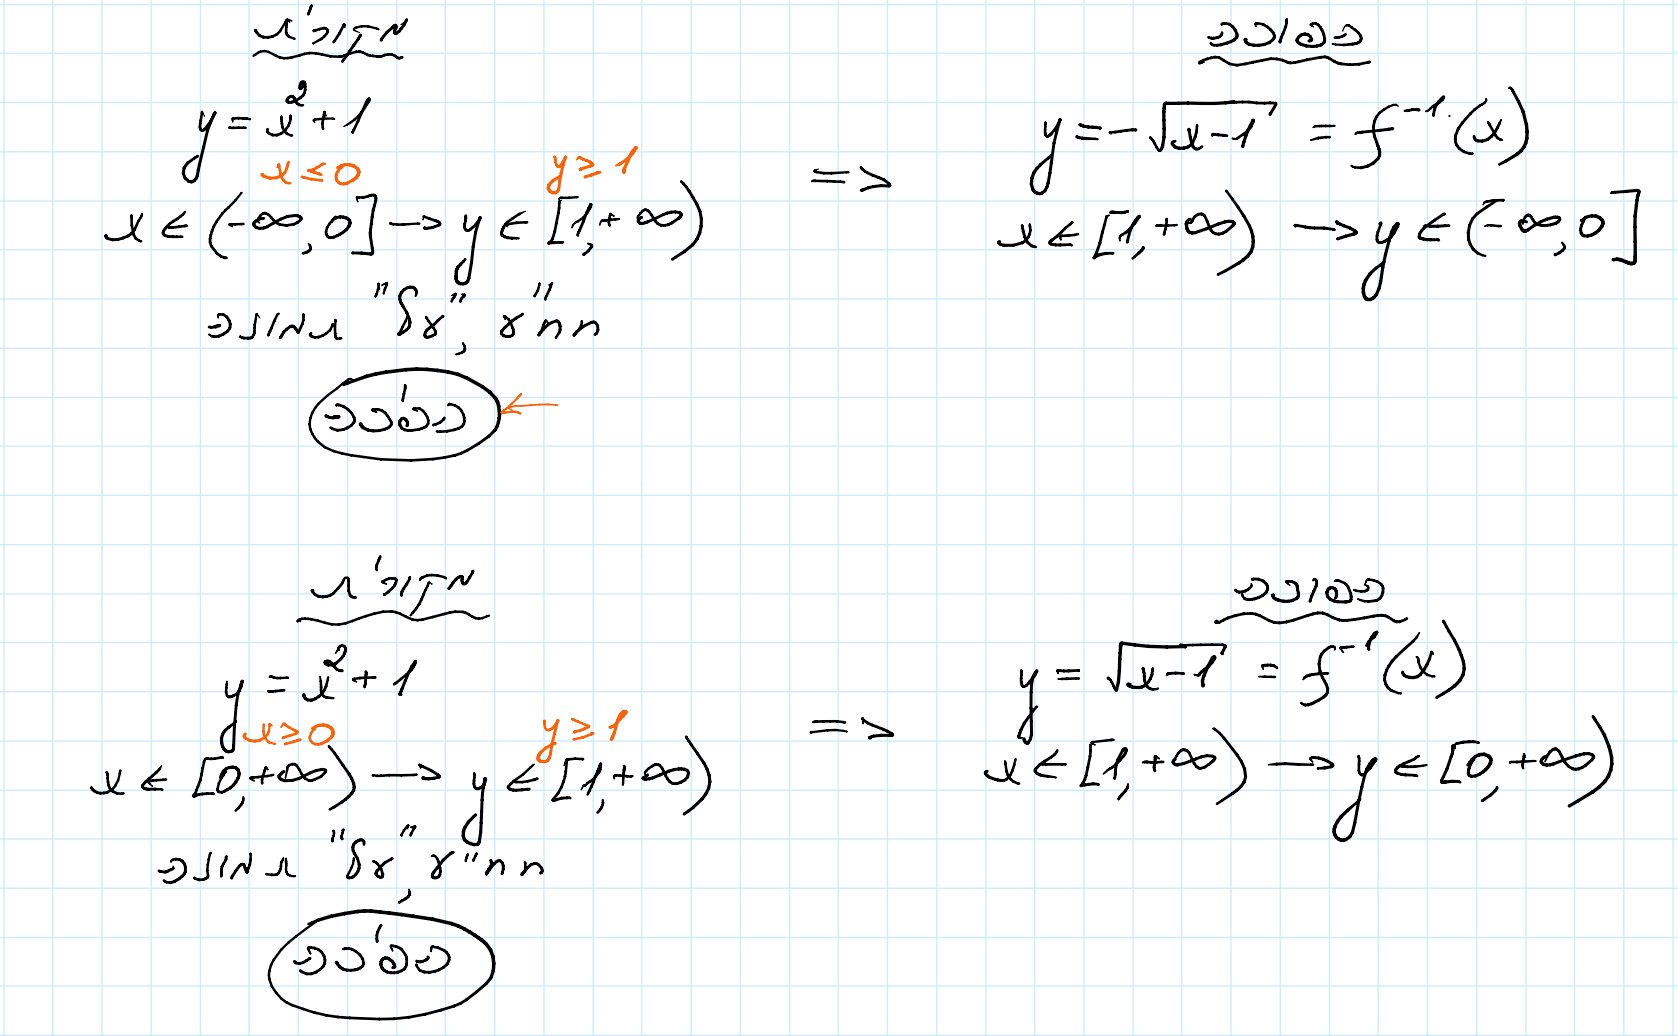 מקורית
y = x² + 1
x ≤ 0
y ≥ 1
x ∈ (-∞, 0] → y ∈ [1, +∞)
חח"ע, "על" תמונה
הפיכה
=>
הפוכה
y = -√(x-1) = f⁻¹(x)
x ∈ [1, +∞) → y ∈ (-∞, 0]
מקורית
y = x² + 1
x ≥ 0
y ≥ 1
x ∈ [0, +∞) → y ∈ [1, +∞)
חח"ע, "על" תמונה
הפיכה
=>
הפוכה
y = √(x-1) = f⁻¹(x)
x ∈ [1, +∞) → y ∈ [0, +∞)